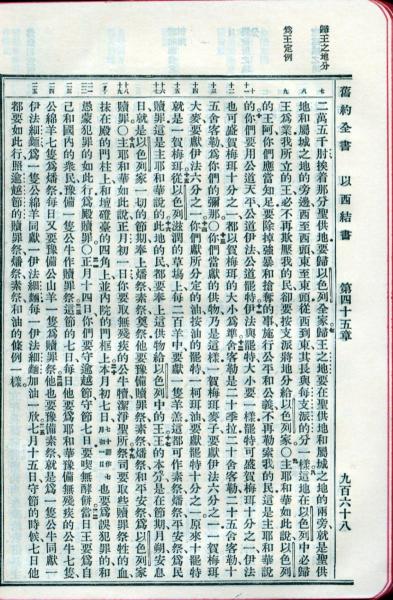 歸王之地分
爲王定例
舊約全書 以西結書 第四十五章 九百六十八
二萬五千肘挨着那分聖供地要歸以色列全家歸王之地要在聖供地和屬城之地的兩旁就是聖供
地和屬城之地的旁邊西至西頭東至東頭從西到東其長與每支派的分一樣這地在以色列中必歸
王爲業我所立的王必不再欺壓我的民卻要按支派將地分給以色列家○主耶和華如此說以色列
的王阿你們應當知足要除掉強暴和搶奪的事施行公平和公義不再勒索我的民這是主耶和華說
的你們要用公道天平公道伊法公道罷特伊法與罷特大小要一樣罷特可盛賀梅珥十分之一伊法
也可盛賀梅珥十分之一都以賀梅珥的大小爲準舍客勒是二十季拉二十舍客勒二十五舍客勒十
五舍客勒爲你們的彌那○你們當獻的供物乃是這樣一賀梅珥麥子要獻伊法六分之一一賀梅珥
大麥要獻伊法六分之一你們獻所分定的油按油的罷特一柯珥油要獻罷特十分之一原來十罷特
就是一賀梅珥從以色列滋潤的草場上每二百羊中要獻一隻羊羔這都可作素祭燔祭平安祭爲民
贖罪這是主耶和華說的此地的民都要奉上這供物給以色列中的王王的本分是在節期月朔安息
日就是以色列家一切的節期奉上燔祭素祭奠祭他要豫備贖罪祭素祭燔祭和平安祭爲以色列家
贖罪○主耶和華如此說正月初一日你要取無殘疾的公牛犢潔淨聖所祭司要取些贖罪祭牲的血
抹在殿的門柱上和壇磴臺的四角上並內院的門框上本月初七日也要爲誤犯罪的和
愚蒙犯罪的如此行爲殿贖罪○正月十四日你們要守逾越節守節七日要喫無酵餅當日王要爲自
己和國內的衆民豫備一隻公牛作贖罪祭這節的七日每日他要爲耶和華豫備無殘疾的公牛七隻
公綿羊七隻爲燔祭每日又要豫備公山羊一隻爲贖罪祭他也要豫備素祭就是爲一隻公牛同獻一
伊法細麵爲一隻公綿羊同獻一伊法細麵每一伊法細麵加油一欣七月十五日守節的時候七日他
都要如此行照逾越節的贖罪祭燔祭素祭和油的條例一樣